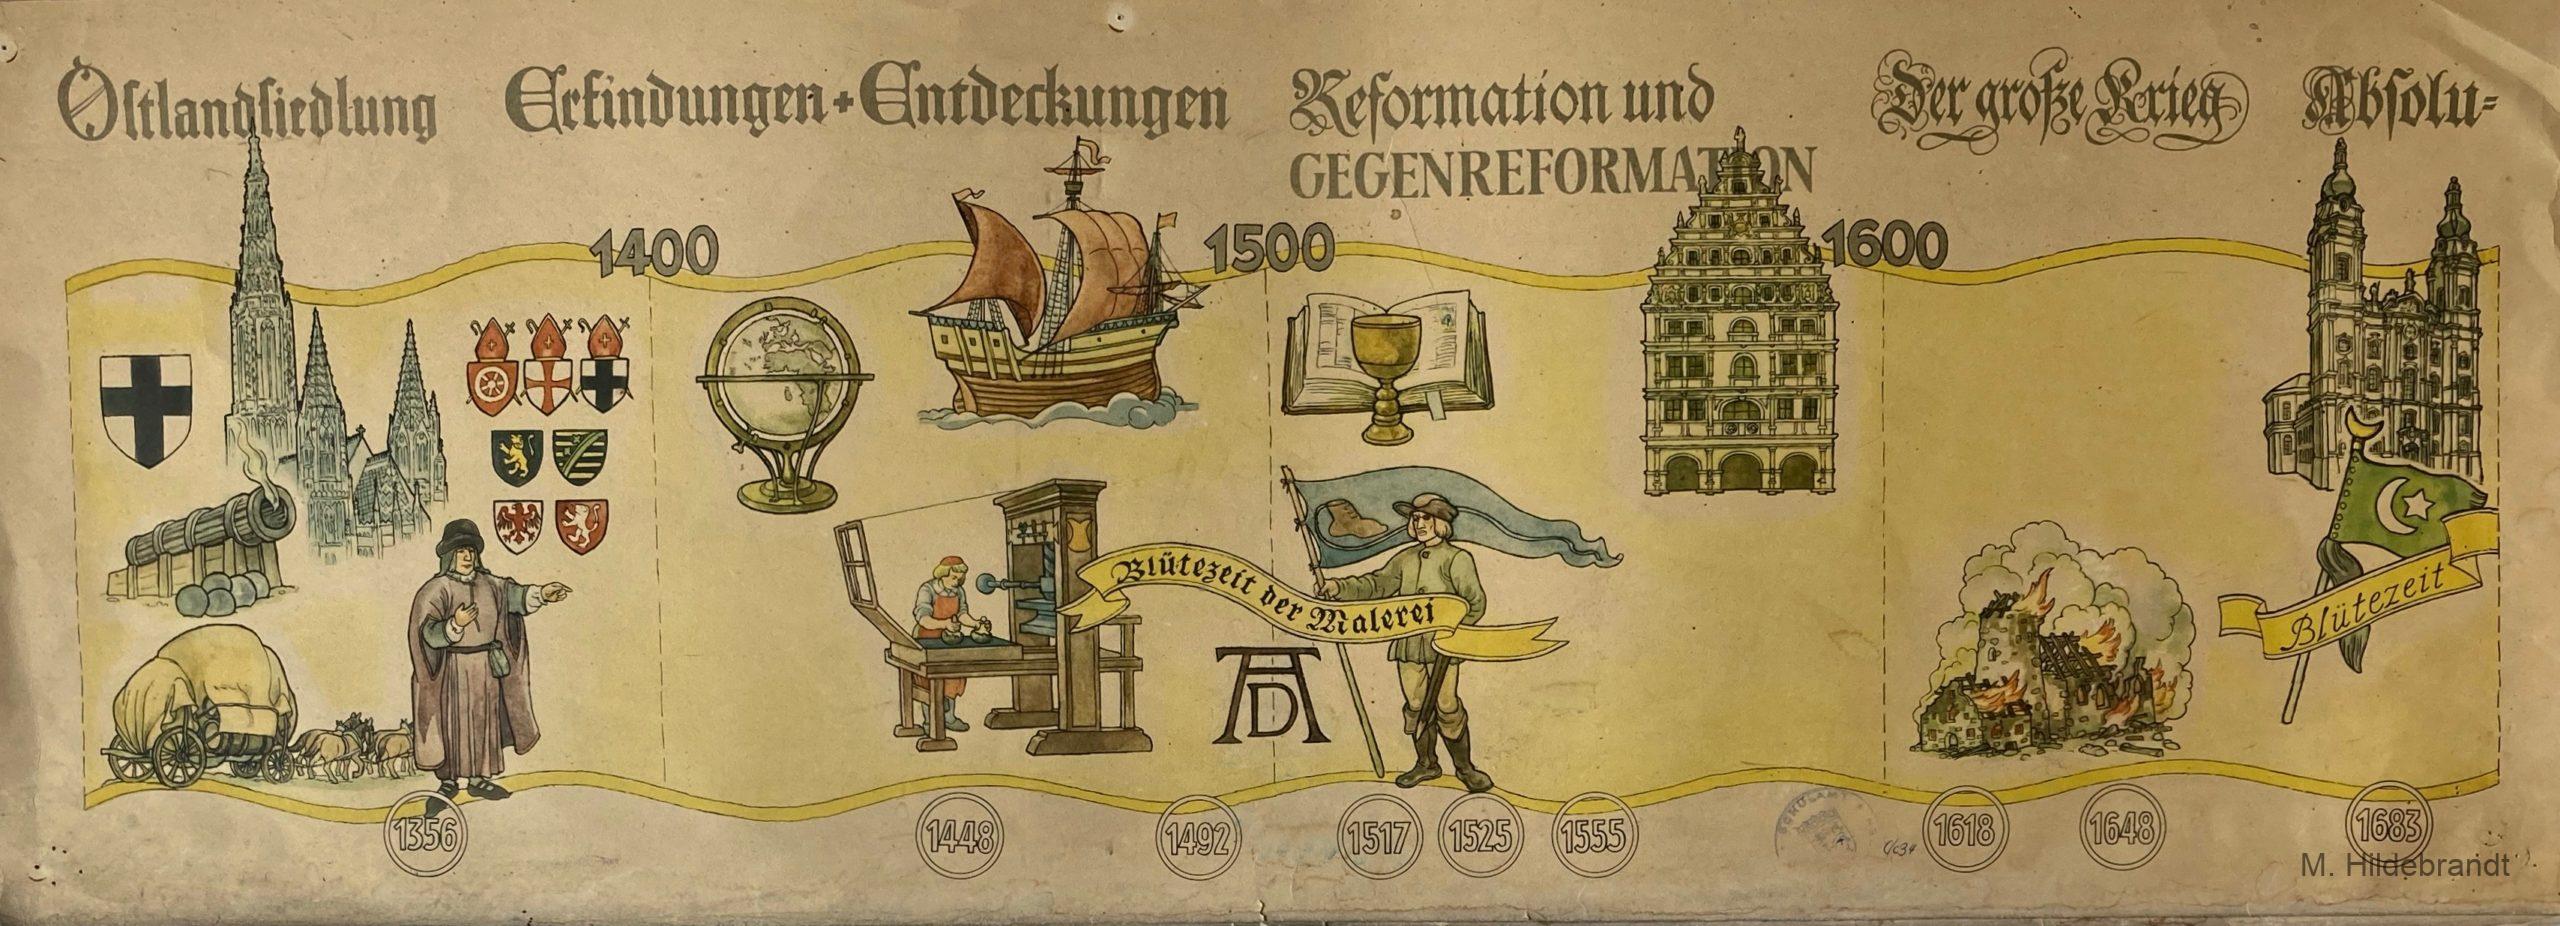 Ostlandsiedlung
Erfindungen + Entdeckungen
Reformation und
GEGENREFORMATION
Der große Krieg
Absolu-
1400
1500
1600
Blütezeit der Malerei
AD
Blütezeit
1356
1448
1492
1517
1525
1555
SCHULAMT
1618
1648
1683
M. Hildebrandt